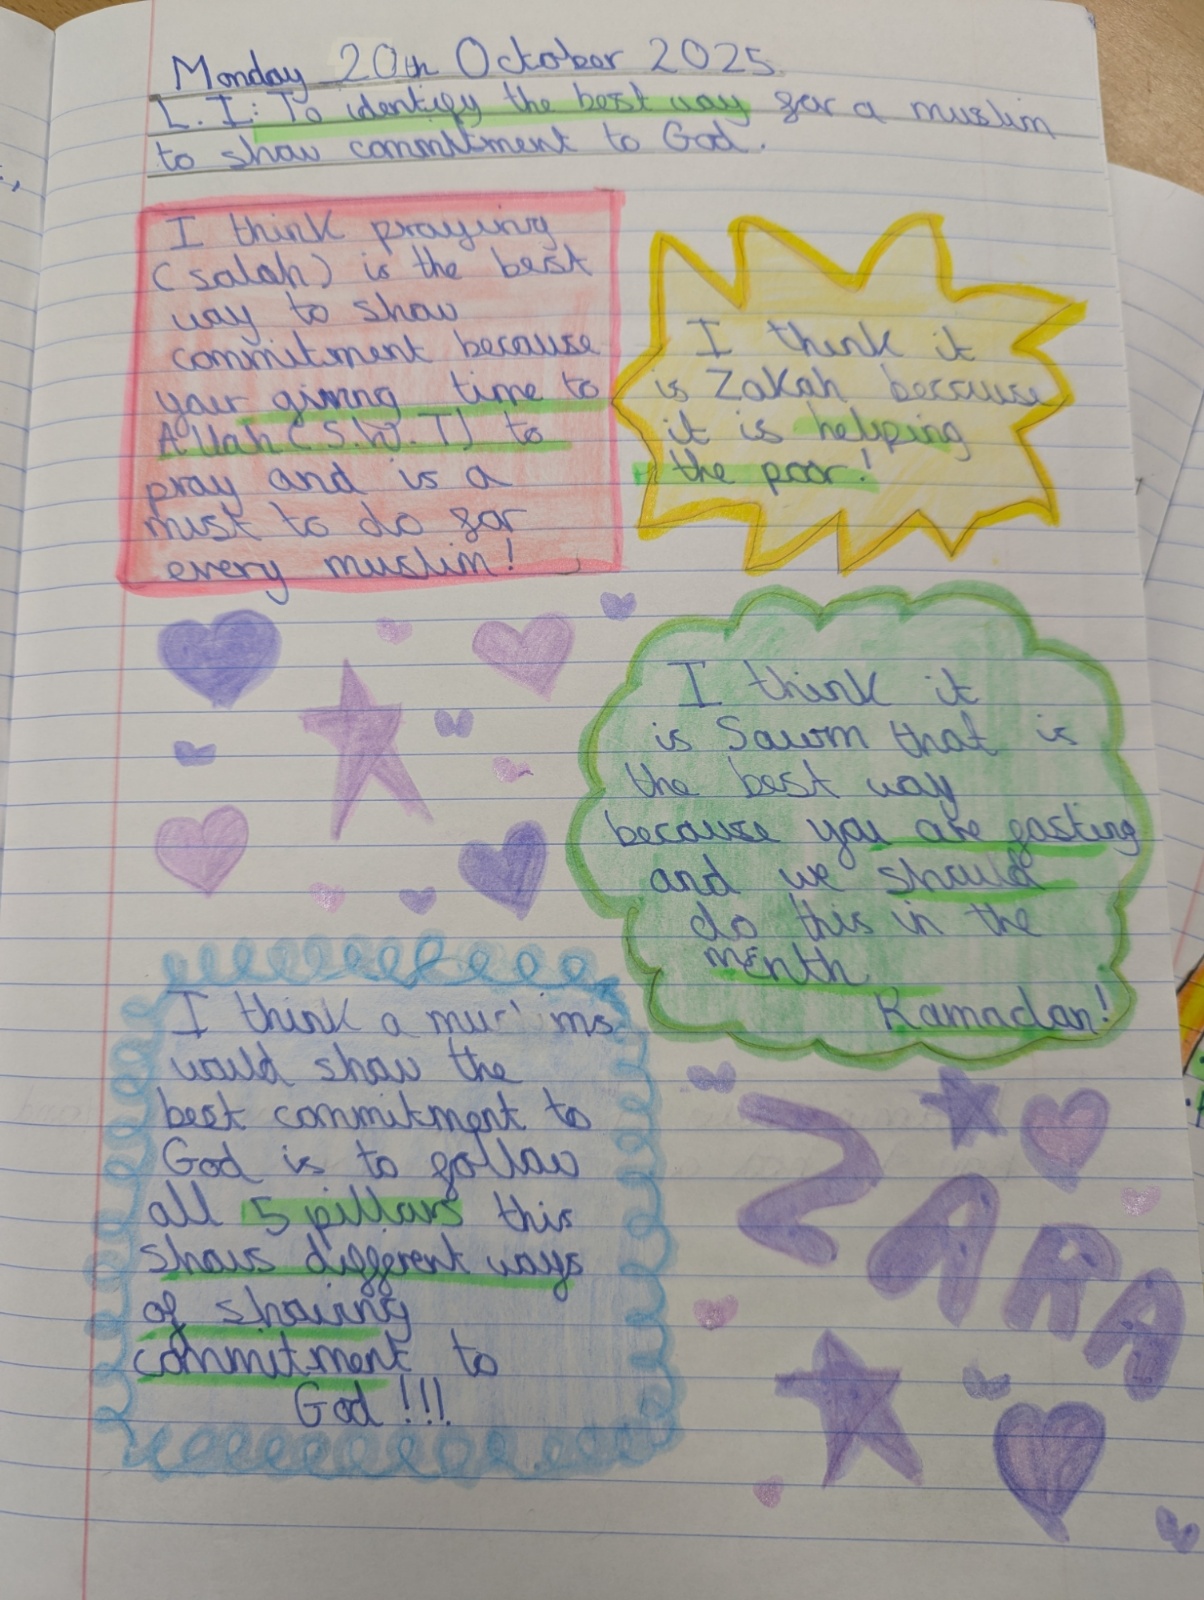 Monday 20th October 2025.
L.I: To identify the best way for a muslim
to show commitment to God.
I think praying
(salah) is the best
way to show
commitment because
your giving time to
Allah (S.W.T) to
pray and is a
must to do for
every muslim!
I think it
is Zakah because
it is helping
the poor!
I think it
is Sawm that is
the best way
because you are fasting
and we should
do this in the
month
Ramadan!
I think a
would show the
best commitment to
God is to follow
all 5 pillars this
shows different ways
of showing
commitment to
God!!!
ZARA